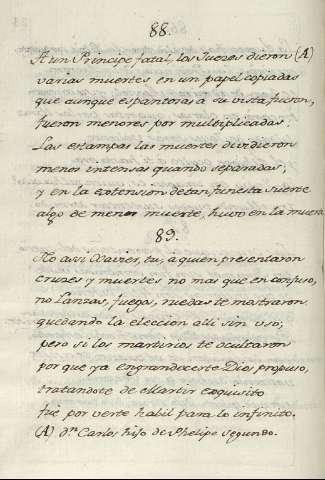 88.
A un Principe fatal, los Juezes dieron (A)
varias muertes en un papel copiadas
que aunque espantosas a su vista fueron,
fueron menores por multiplicadas:
Las estampas las muertes dividieron
menos intensas quando separadas;
y en la extension de tan funesta suerte
algo de menos muerte, huvo en la muerte
89.
No assi Xavier, tu, a quien presentaron
cruzes y muertes no mas que en confuso,
no Lanzas, fuego, ruedas te mostraron
quedando la eleccion alli sin uso;
pero si los martirios te ocultaron
por que ya engrandecerte Dios propuso,
tratandote de Martir exquisito
fué por verte habil para lo infinito.
(A) dn Carlos hijo de Phelipe segundo.